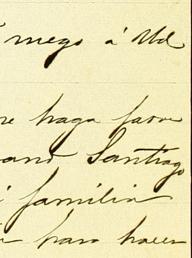 mego á Ud
re haga favor
and Santiago
i familia
para hacer